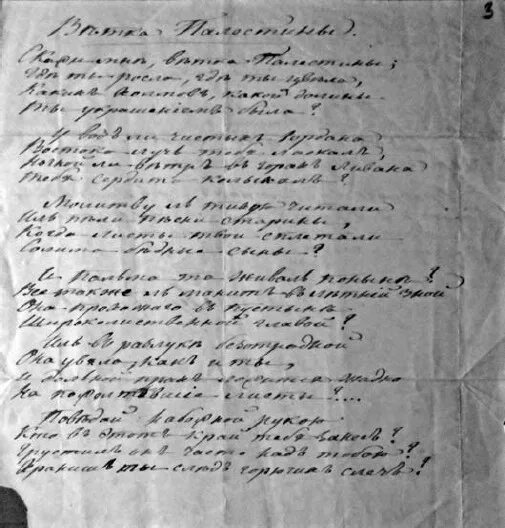 3
Вѣтка Палестины.
Скажи мнѣ, вѣтка Палестины;
Гдѣ ты росла, гдѣ ты цвѣла,
Какихъ холмовъ, какой долины
Ты украшеніемъ была?
У водъ ли чистыхъ Іордана
Востока лучь тебя ласкалъ,
Ночной ли вѣтръ въ горахъ Ливана
Тебя сердито колыхалъ?
Молитву ль тихую читали
Иль пѣли пѣсни старины,
Когда листы твои сплетали
Солима бѣдные сыны?
И пальма та жива ль понынѣ?
Все также ль манитъ въ лѣтній зной
Она прохожаго въ пустынѣ
Широколиственной главой?
Иль въ разлукѣ безотрадной
Она увяла, какъ и ты,
И дольній прахъ ложится жадно
На пожелтѣвшіе листы?...
Повѣдай: набожной рукою
Кто въ этотъ край тебя занесъ?
Грустилъ онъ часто надъ тобою?
Хранишь ты слѣдъ горючихъ слезъ?